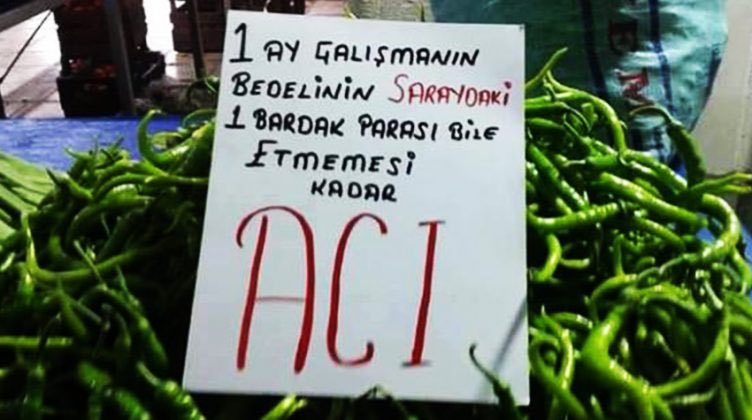 1 AY ÇALIŞMANIN
BEDELİNİN SARAYDAKİ
1 BARDAK PARASI BİLE
ETMEMESİ
KADAR
ACI